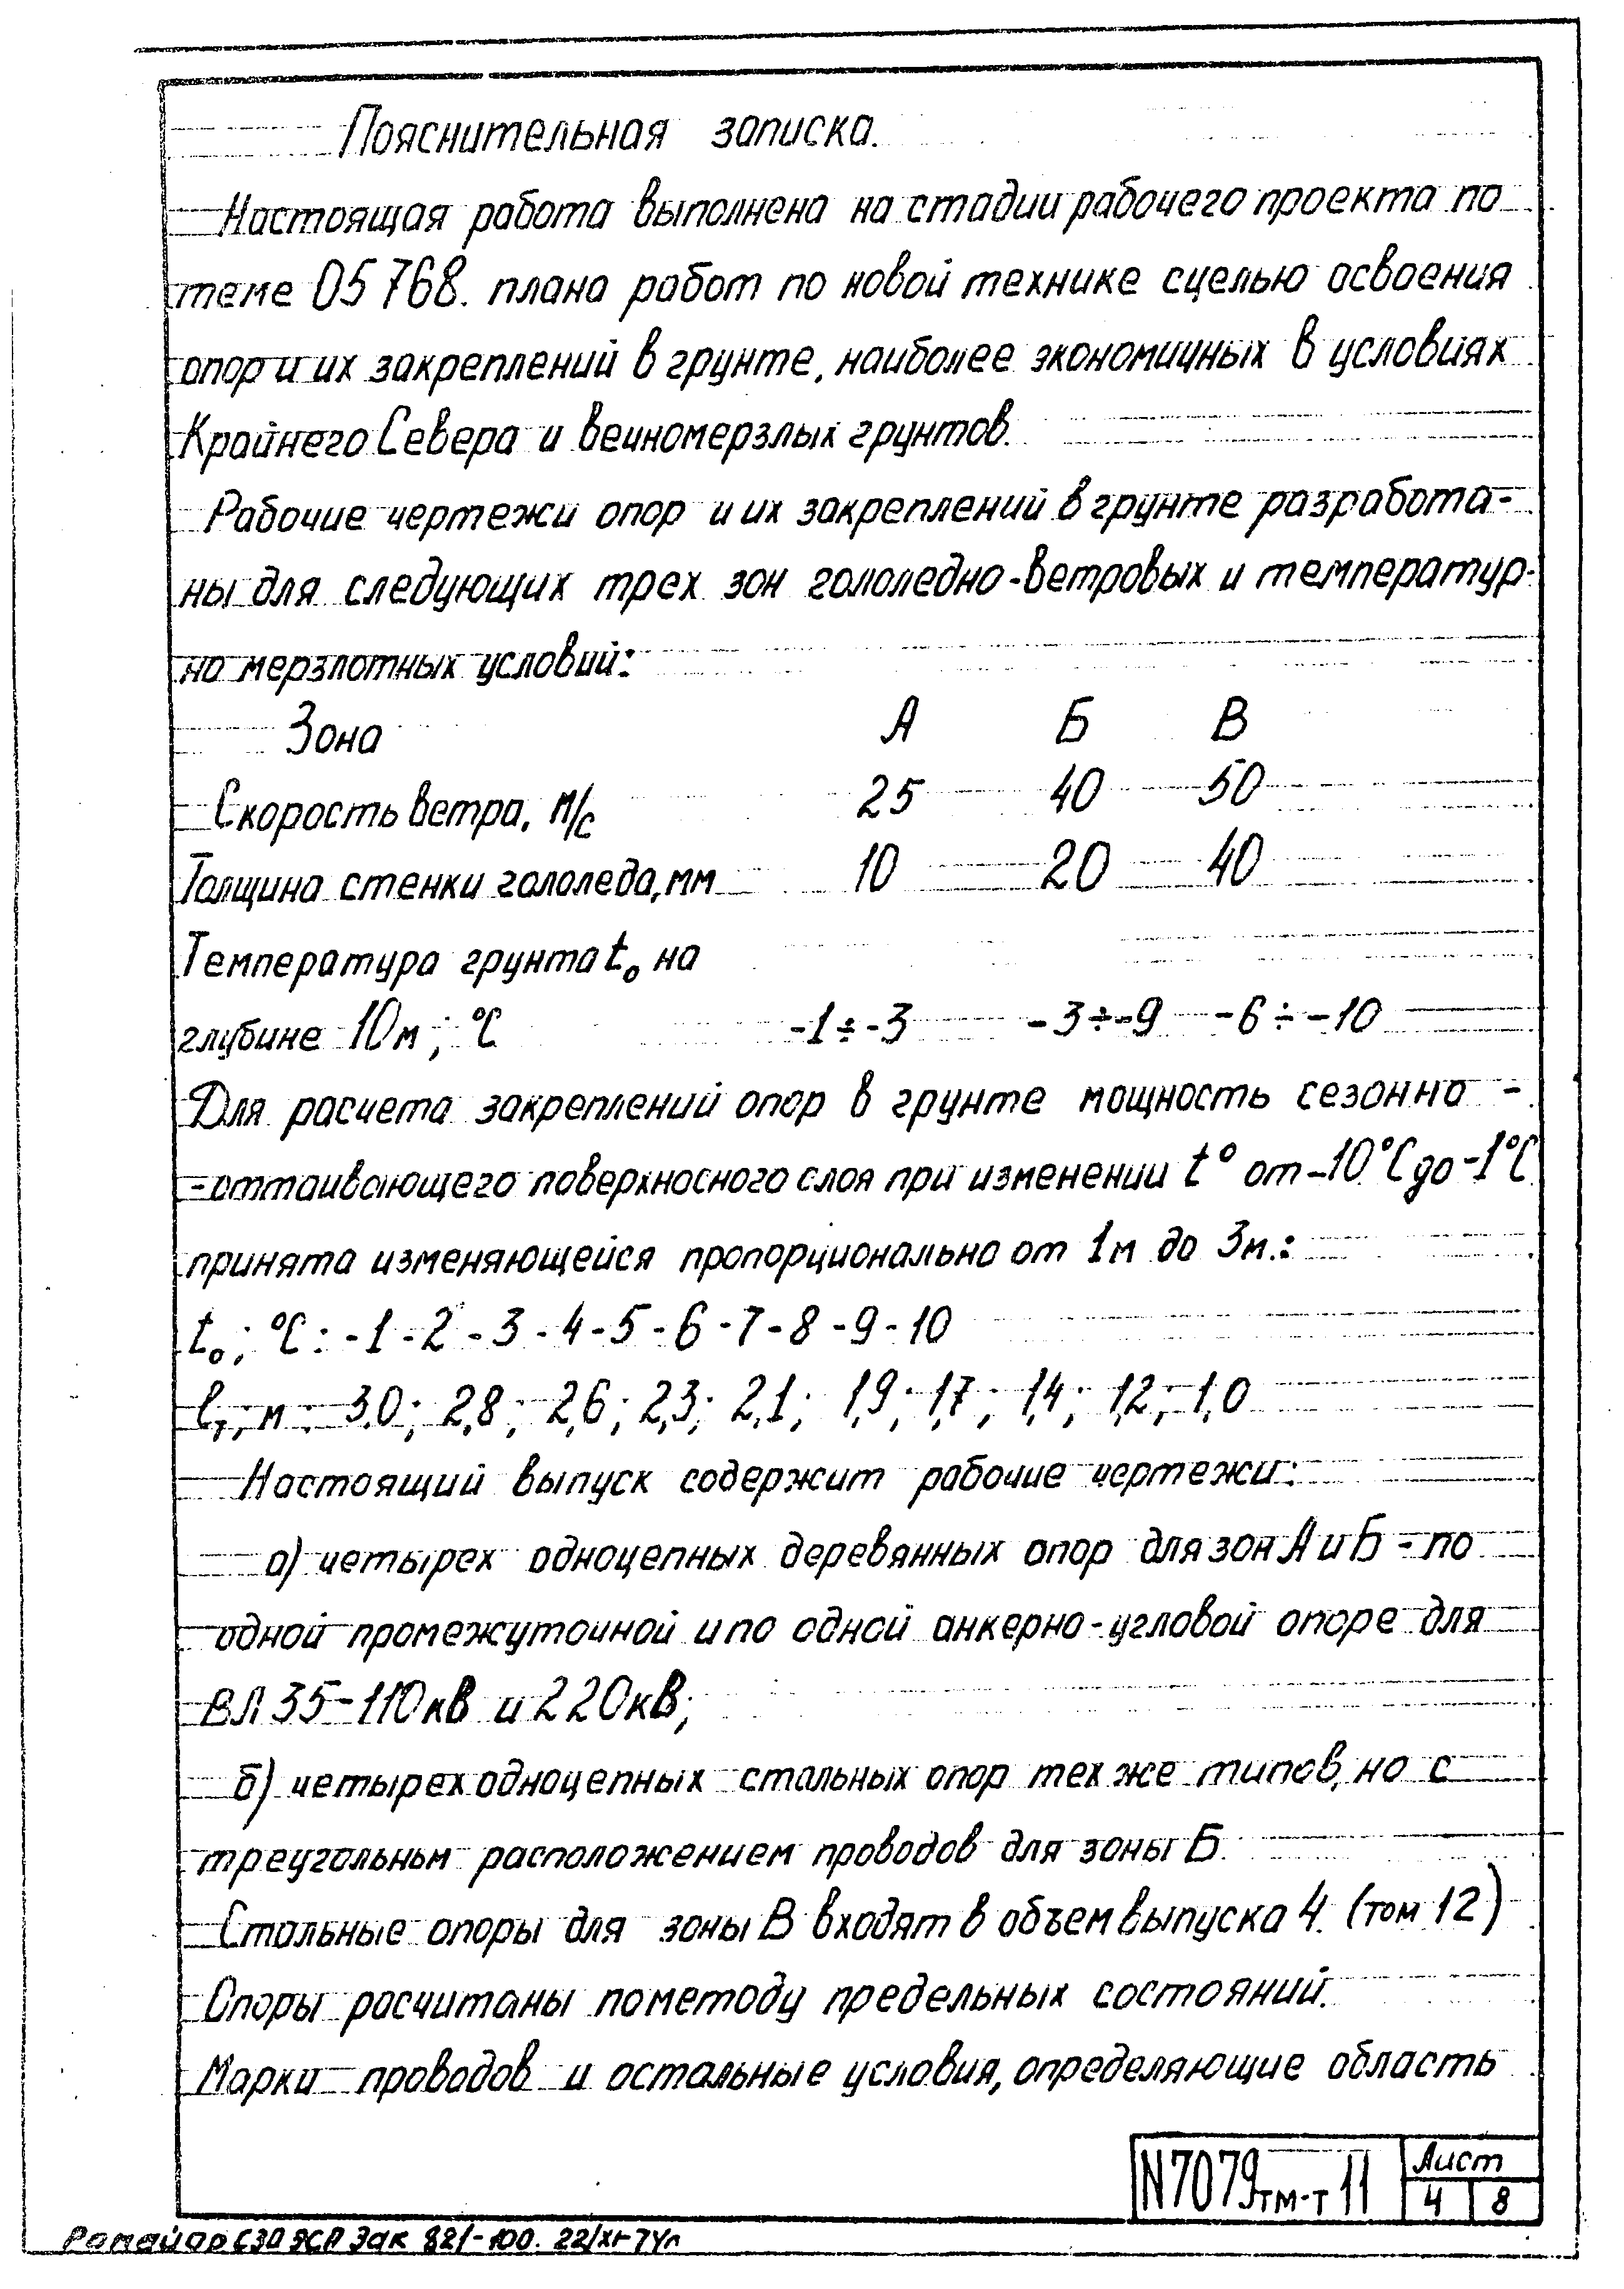 Пояснительная записка.
Настоящая работа выполнена на стадии рабочего проекта по
теме 05768. плана работ по новой технике сцелью освоения
опор и их закреплений в грунте, наиболее экономичных в условиях
Крайнего Севера и вечномерзлых грунтов.
Рабочие чертежи опор и их закреплений в грунте разработа-
ны для следующих трех зон гололедно-ветровых и температур-
но мерзлотных условий:
Зона А Б В
Скорость ветра, м/с 25 40 50
Толщина стенки гололеда, мм 10 20 40
Температура грунта t₀ на
глубине 10м; °С -1÷-3 -3÷-9 -6÷-10
Для расчета закреплений опор в грунте мощность сезонно -
-оттаивающего поверхносного слоя при изменении t° от -10°С до -1°С
принята изменяющейся пропорционально от 1м до 3м.:
t₀; °С: -1 -2 -3 -4 -5 -6 -7 -8 -9 -10
lт; м: 3.0; 2,8; 2,6; 2,3; 2,1; 1,9; 1,7; 1,4; 1,2; 1,0
Настоящий выпуск содержит рабочие чертежи:
а) четырех одноцепных деревянных опор для зон А и Б - по
одной промежуточной и по одной анкерно-угловой опоре для
ВЛ 35-110кв и 220кв;
б) четырех одноцепных стальных опор тех же типов, но с
треугольным расположением проводов для зоны Б.
Стальные опоры для зоны В входят в объем выпуска 4. (том 12)
Опоры расчитаны по методу предельных состояний.
Марки проводов и остальные условия, определяющие область
N7079тм-т11 Лист
4 8
Ротайор СЗО ЭСП Зак 821-100. 22/XI-74г